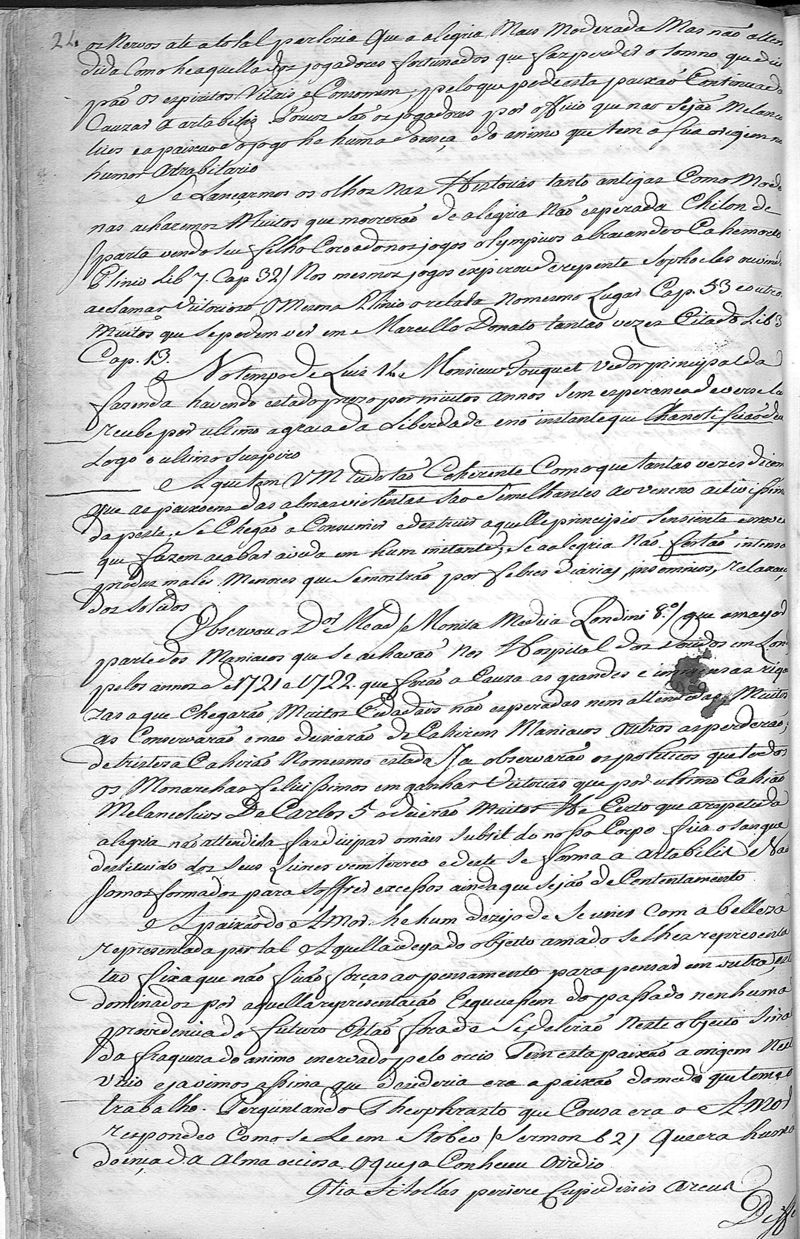 24
os Nervos até a total parlezia Que a alegria Mais Moderada Mas não atten
dida Como he aquella dos jogadores fortunados que faz perder o somno, que dici
pão os espiritos Vitais e Consomem, pelo que pode esta paixão Continuada
Cauzar a artabilis Poucos são os jogadores por officio que não sejão Melanco
licos e a paixão do jogo he huma doença do animo que tem a sua origem no
humor Atrabilario
Se Lançarmos os olhos nas Historias tanto antigas Como Moder
nas acharemos Muitos que morrerão de alegria não esperada Chilon de
Sparta vendo seu filho Coroado nos jogos olympicos abraçando o Cahe morto
Plinio Lib 7. Cap 32/ Nos mesmos jogos expirou de repente Sophocles ouvindo
aclamar Vitorioso, O Mesmo Plinio o relata no mesmo Lugar Cap. 53 e outros
muitos que se podem ver em Marcello Donato tantas vezes Citado Lib 3
Cap. 13.
No tempo de Luis 14 Monsieur Fouquet Vedor principal da
fazenda havendo estado prezo por muitos annos sem esperança de ver se la
recebe por ultimo a graça da Liberdade e no instante que
Logo o ultimo suspiro
e Aqui tem VM tudo tão Coherente Como que tantas vezes dicemos
que as paixoens das almas violentas são Semelhantes ao veneno activissimo
da peste, Se Chegão a Consumir e destruir aquelle principio Senciente e movente
que fazem acabar a vida em hum instante, Se a alegria Não for tão intensa
produz males Menores que se mostrão por febres diarias, insomnios, relaxação
dos Solidos
Observou o Dor Mead / Monita Medica Londini 8.o/ que a mayor
parte dos Maniacos que se achavão nos Hospital dos doudos em Lon
pelos annos de 1721 e 1722 que forão a Cauza as grandes e imensas rique
zas a que Chegarão Muitos Cidadais não esperadas nem attendidas, Muitos
as Conservarão e não deixarão de Cahirem Maniacos outros as perderão;
de tristeza Cahirão no mesmo estado Ja observarão os politicos que todos
os Monarchas felicissimos em ganhar Vitorias que por ultimo Cahião
Melancolicos De Carlos 5 o dicerão Muitos He Certo que a repetida
alegria não attendida faz dicipar o mais subtil do nosso Corpo fica o sangue
destituido dos seus Licores vem terreo e deste se forma a artabilis e Não
somos formados para soffrer excessos ainda que sejão de Contentamento
e A paixão de Amor he hum dezejo de se unir com a belleza
representada por tal e Aquella ideya do objecto amado se lhe representa
tão fixa que não ficão forças ao pensamento para pensar em outra,
dominados por aquella representação Esquecem do passado nenhuma
providencia do futuro
da fraqueza do animo enervado pelo occio Tem esta paixão a origem Neste
Vicio e ja vimos assima que a desideria era a paixão do medo que tem ao
trabalho. Perguntando Theophrasto que Cousa era o Amor
respondeo Como se Le em Stobeo / Sermon 62/ Que era huma
doença d.a Alma occiosa O que ja Conheceu Ovidio
Otia Si tollas periere Cupidinis arcus